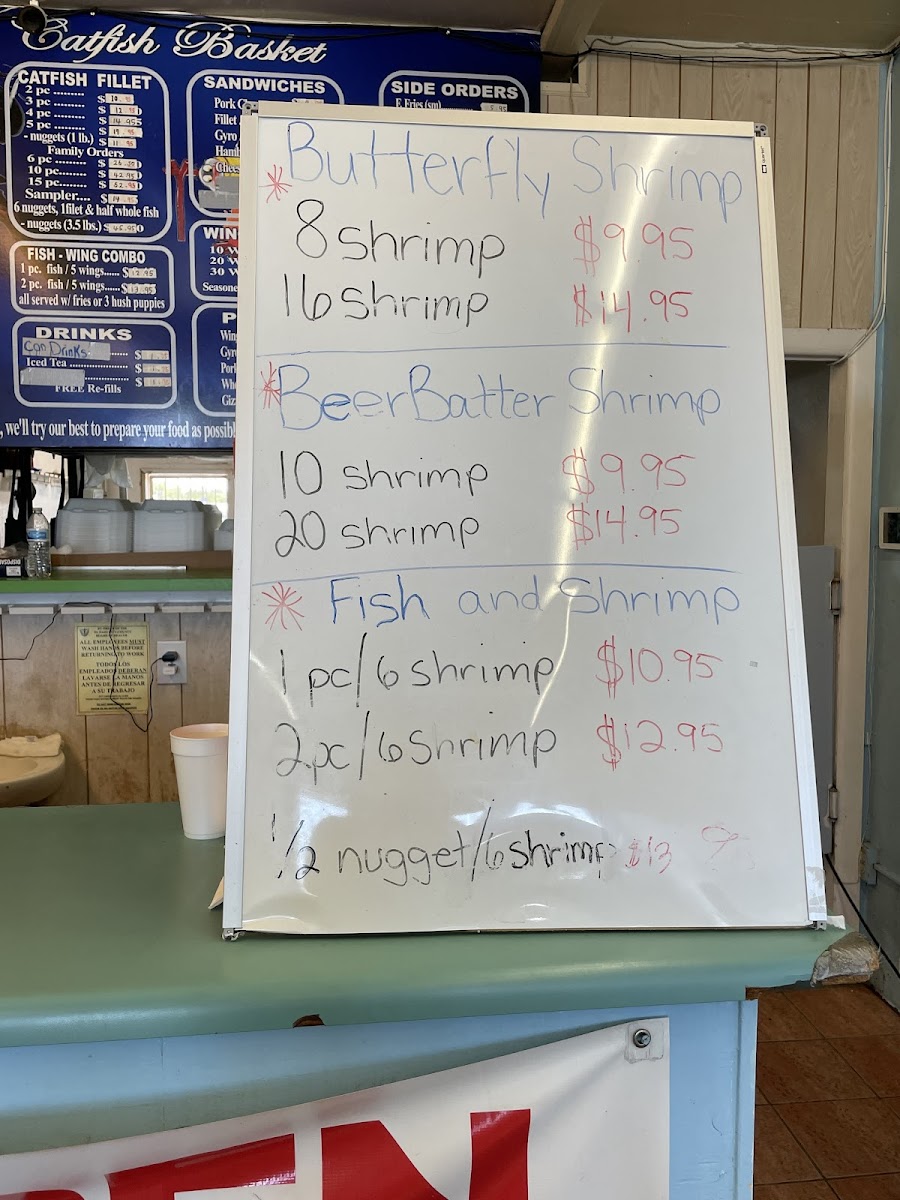 Catfish Basket
CATFISH FILLET
2 pc .......... $
3 pc .......... $ 12.95
4 pc .......... $ 14.95
5 pc ......... $
- nuggets (1 lb.) $ 11.95
Family Orders
6 pc ......... $
10 pc........ $ 42.95
15 pc........ $ 52.95
Sampler.... $
6 nuggets, 1filet & half whole fish
- nuggets (3.5 lbs.) $
FISH - WING COMBO
1 pc. fish / 5 wings...... $ 12.95
2 pc. fish / 5 wings...... $
all served w/ fries or 3 hush puppies
DRINKS
Can Drinks ..... $
Iced Tea ..................... $
$
FREE Re-fills
, we'll try our best to prepare your food as possibl
SANDWICHES
Pork
Fillet
Gyro
SIDE ORDERS
F. Fries (sm)
WIN
10 W
20 W
30 W
Seasone
P
Win
Gyr
Por
Who
Giz
* Butterfly Shrimp
8 shrimp $9.95
16 shrimp $14.95
* Beer Batter Shrimp
10 shrimp $9.95
20 shrimp $14.95
* Fish and Shrimp
1 pc/6 shrimp $10.95
2 pc/6 Shrimp $12.95
1/2 nugget/6 shrimp $13
ALL EMPLOYEES MUST
WASH HANDS BEFORE
RETURNING TO WORK
TODOS LOS
EMPLEADOS DEBERAN
LAVARSE LA MANOS
ANTES DE REGRESAR
A SU TRABAJO
EN